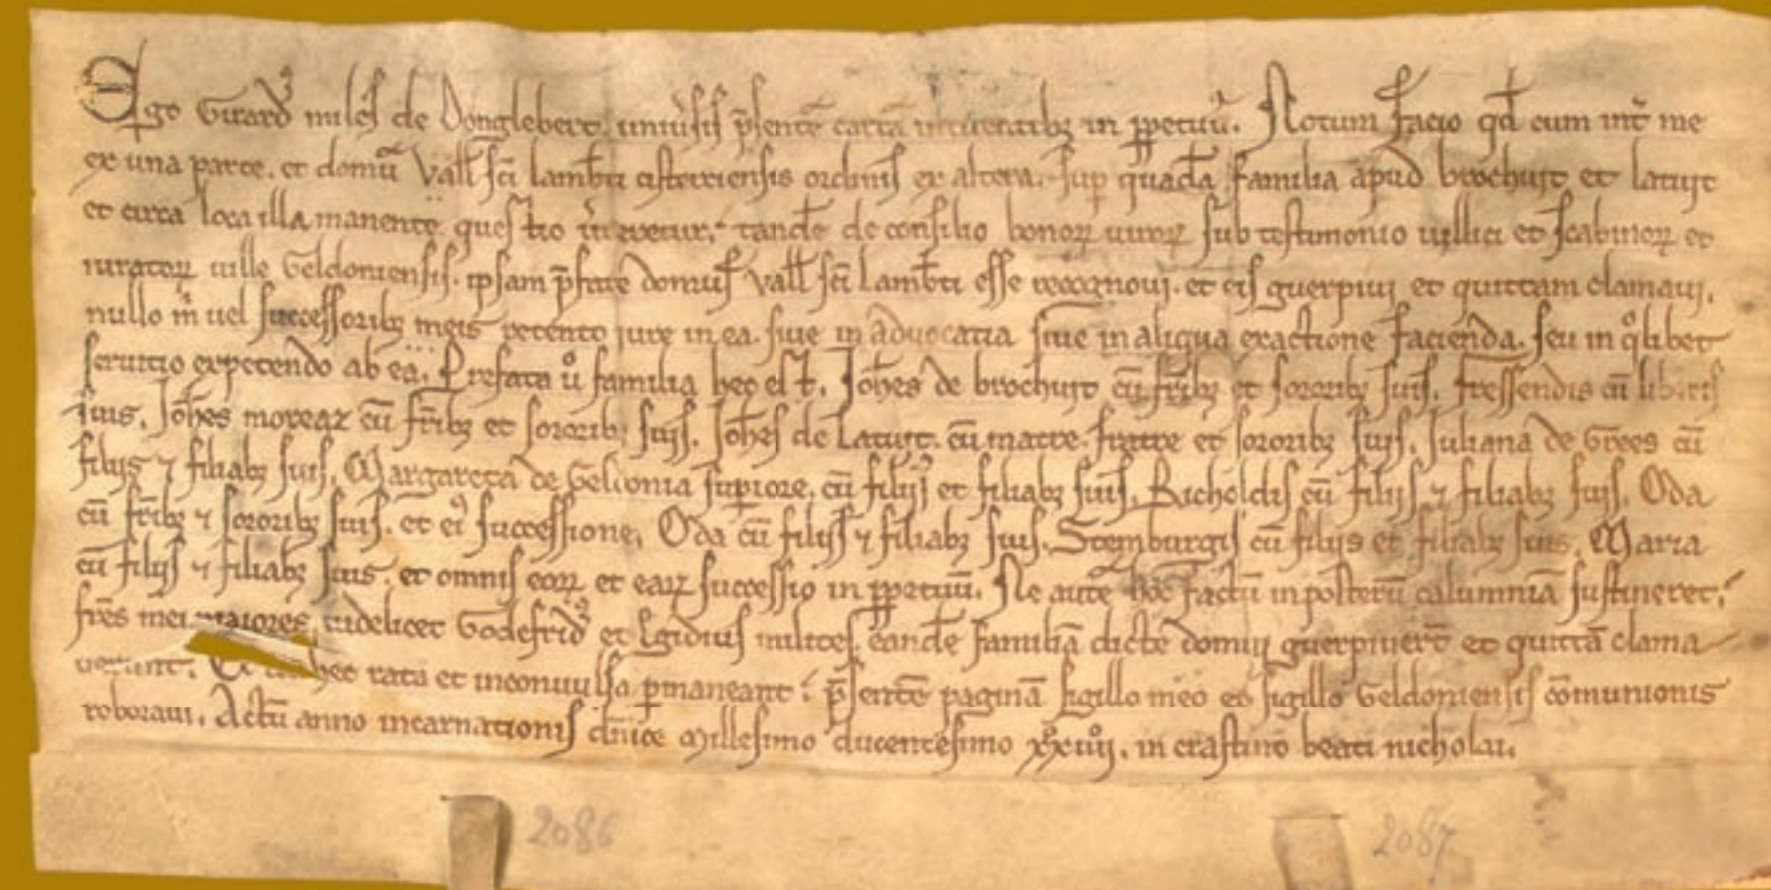 Ego Girard᷒ miles de Donglebert. uniu̓sis p̄sentē cartā intuentibꝫ in ꝑpetuū. Notum facio qđ cum int̓ me
ex una parte. et domū Vall̄ sc̄i lamb̄ti cisterciensis ordinis ex altera. sup̱ quadā familia apud brochuyt et latuyt
et circa loca illa manente questio u̓teretur. tandē de consilio bonoꝝ uiroꝝ sub testimonio uillici et scabinoꝝ et
iuratoꝝ uille Geldoniensis. ipsam p̄fate domus Vall̄ sc̄i lamb̄ti esse recognoui. et eis guerpiui et quittam clamaui.
nullo m̄ uel successoribꝫ meis retento jure in ea. siue in aduocatia siue in aliqua exactione facienda. seu in qͦlibet
seruitio expetendo ab ea. Prefata uͦ familia hec est. Joh̄es de brochuyt cū fr̄ibꝫ et sororibꝫ suis. Fressendis cū liberis
suis. Joh̄es moreaz cū fr̄ibꝫ et sororibꝫ suis. Joh̄es de Latuyt. cū matre. fratre et sororibꝫ suis. Juliana de Grees cū
filijs ⁊ filiabꝫ suis. Margareta de Geldonia superiore. cū filijs et filiabꝫ suis. Richoldis cū filijs ⁊ filiabꝫ suis. Oda
cū fr̄ibꝫ ⁊ sororibꝫ suis. et ei᷒ successione. Oda cū filijs ⁊ filiabꝫ suis. Stemburgis cū filijs et filiabꝫ suis. Maria
cū filijs ⁊ filiabꝫ suis. et omnis eoꝝ et eaꝝ successio in ꝑpetuū. Ne autē hoc factū in posterū calumniā sustineret.
fr̄es mei maiores. uidelicet Godefrid᷒ et Egidius milites. eandē familiā dicte domui guerpiuert̄ et quittā clama
uerunt. hec rata et inconuulsa ꝑmaneant. p̄sentē paginā sigillo meo et sigillo Geldoniensis cōmunionis
roboraui. Actū anno incarnationis dn̄ice Millesimo ducentesimo xxͦiiijͦ. in crastino beati nicholai.
2086 2087